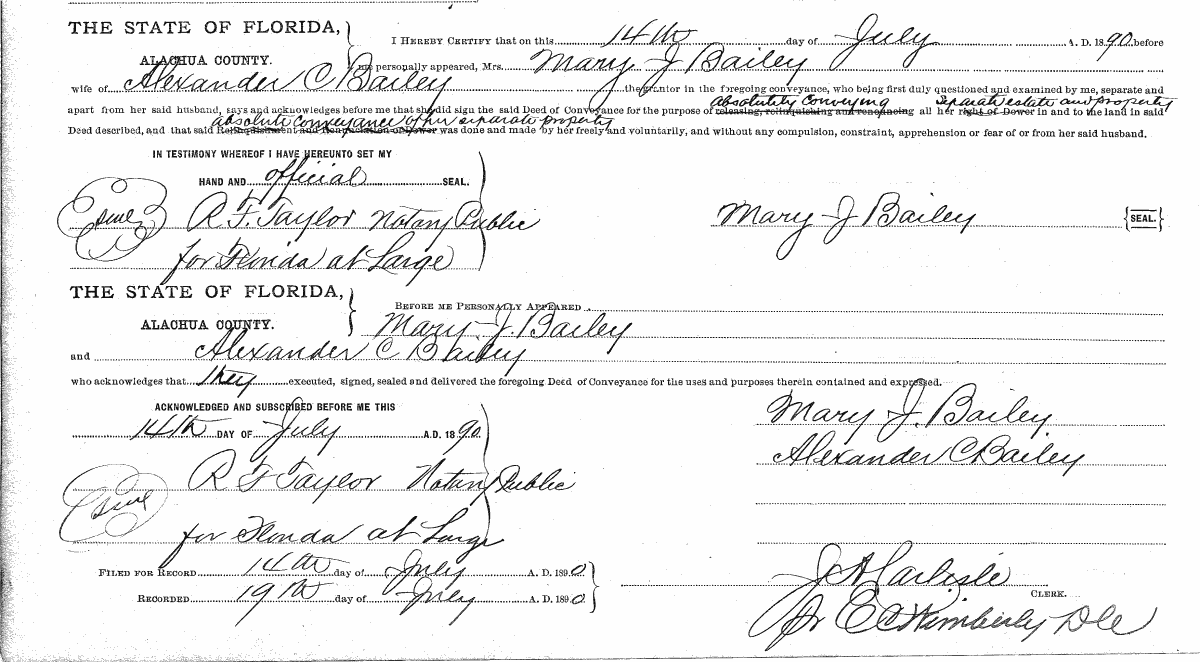 THE STATE OF FLORIDA,
ALACHUA COUNTY.
I HEREBY CERTIFY that on this 14th day of July A. D. 1890 before
me personally appeared, Mrs. Mary J Bailey
wife of Alexander C Bailey the grantor in the foregoing conveyance, who being first duly questioned and examined by me, separate and
absolutely conveying separate estate and property
apart from her said husband, says and acknowledges before me that she did sign the said Deed of Conveyance for the purpose of releasing, relinquishing and renouncing all her right of Dower in and to the land in said
absolute conveyance of her separate property
Deed described, and that said Relinquishment and Renunciation of Dower was done and made by her freely and voluntarily, and without any compulsion, constraint, apprehension or fear of or from her said husband.
IN TESTIMONY WHEREOF I HAVE HEREUNTO SET MY
HAND AND official SEAL.
R. F. Taylor Notary Public
for Florida at Large
Mary J Bailey {SEAL.}
THE STATE OF FLORIDA,
ALACHUA COUNTY.
BEFORE ME PERSONALLY APPEARED
Mary J. Bailey
and Alexander C Bailey
who acknowledges that they executed, signed, sealed and delivered the foregoing Deed of Conveyance for the uses and purposes therein contained and expressed.
ACKNOWLEDGED AND SUBSCRIBED BEFORE ME THIS
14th DAY OF July A.D. 1890
R F Taylor Notary Public
for Florida at Large
Mary J. Bailey
Alexander C Bailey
FILED FOR RECORD 14th day of July A. D. 1890.
RECORDED 19th day of July A. D. 1890.
J A Carlisle
CLERK.
Pr E C Wimberly D C